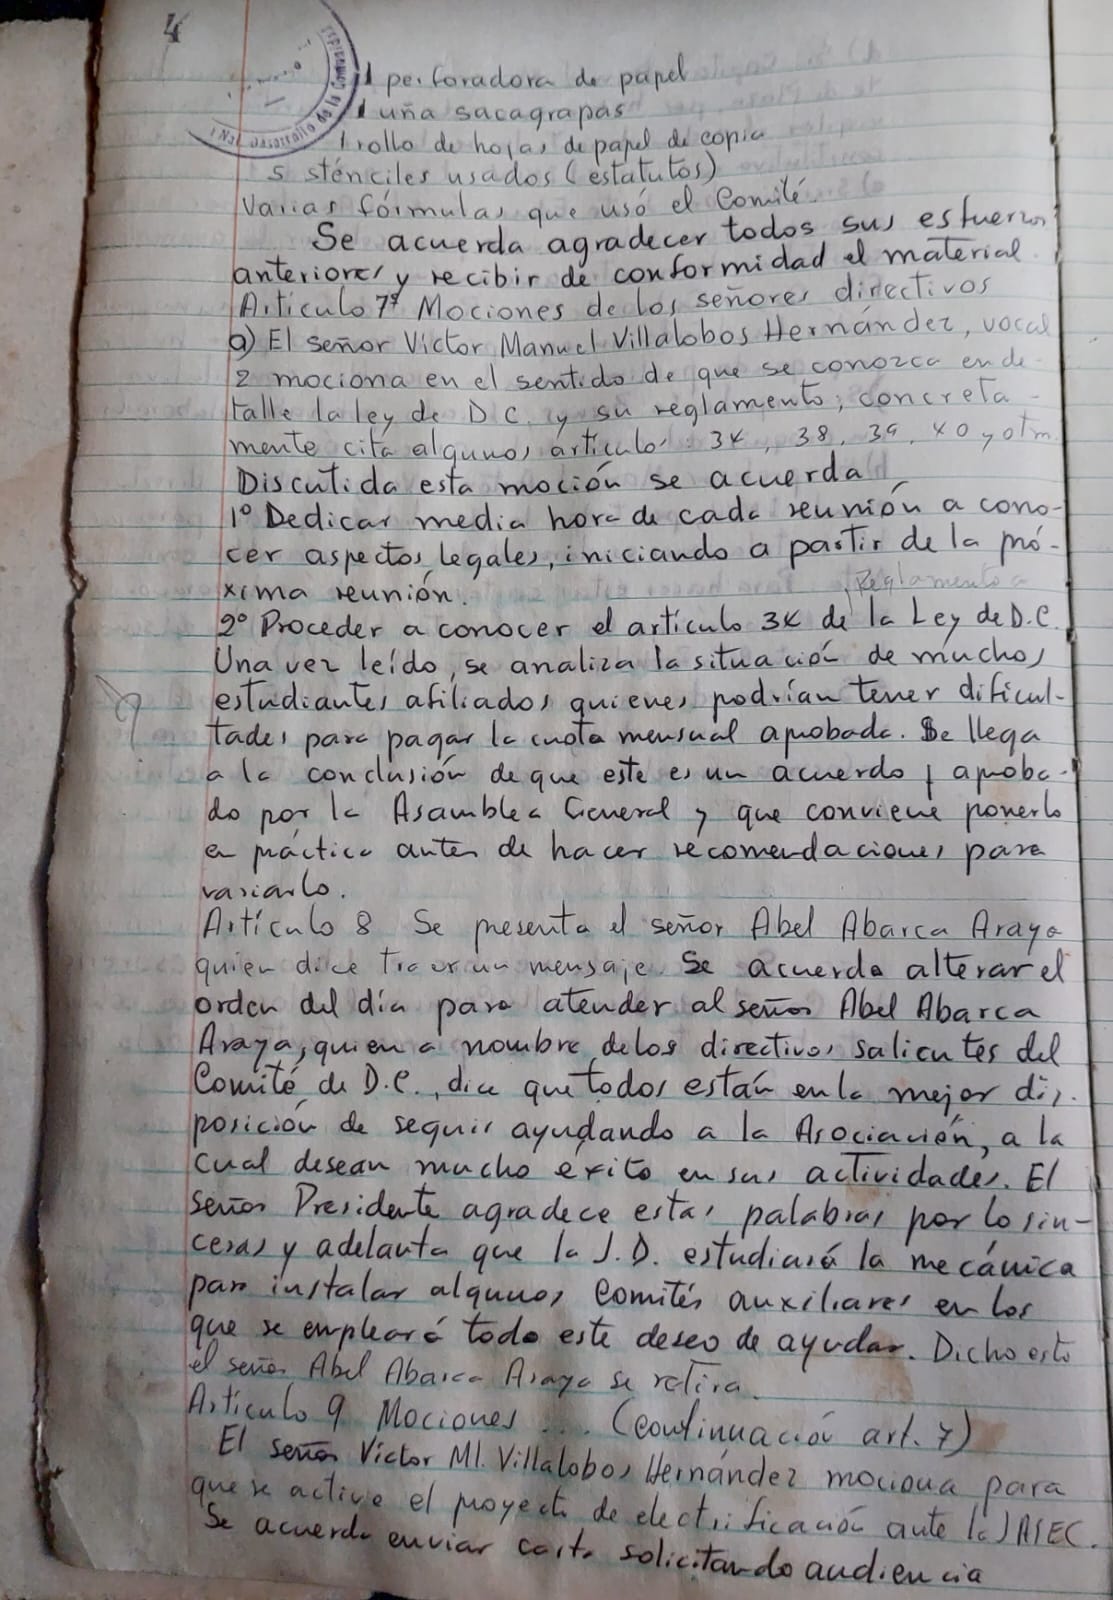 4
1 perforadora de papel
1 uña sacagrapas
1 rollo de hojas de papel de copia
5 sténciles usados (estatutos)
Varias fórmulas que usó el Comité.
Se acuerda agradecer todos sus esfuerzos
anteriores y recibir de conformidad el material.
Artículo 7º Mociones de los señores directivos
a) El señor Víctor Manuel Villalobos Hernández, vocal
2 mociona en el sentido de que se conozca en de-
talle la ley de D.C. y su reglamento; concreta-
mente cita algunos artículos 34, 38, 39, 40 y otros
Discutida esta moción se acuerda
1º Dedicar media hora de cada reunión a cono-
cer aspectos legales, iniciando a partir de la pró-
xima reunión.
Reglamento a
2º Proceder a conocer el artículo 34 de la Ley de D.C.
Una vez leído, se analiza la situación de muchos
estudiantes afiliados quienes podrían tener dificul-
tades para pagar la cuota mensual aprobada. Se llega
a la conclusión de que este es un acuerdo aproba-
do por la Asamblea General y que conviene ponerlo
en práctica antes de hacer recomendaciones para
variarlo.
Artículo 8 Se presenta el señor Abel Abarca Araya
quien dice traer un mensaje. Se acuerda alterar el
orden del día para atender al señor Abel Abarca
Araya, quien a nombre de los directivos salientes del
Comité de D.C., dice que todos están en la mejor dis-
posición de seguir ayudando a la Asociación, a la
cual desean mucho éxito en sus actividades. El
señor Presidente agradece estas palabras por lo sin-
ceras y adelanta que la J.D. estudiará la mecánica
para instalar algunos Comités auxiliares en los
que se empleará todo este deseo de ayudar. Dicho esto
el señor Abel Abarca Araya se retira.
Artículo 9 Mociones ... (continuación art. 7)
El señor Víctor Ml. Villalobos Hernández mociona para
que se active el proyecto de electrificación ante la JASEC.
Se acuerda enviar carta solicitando audiencia